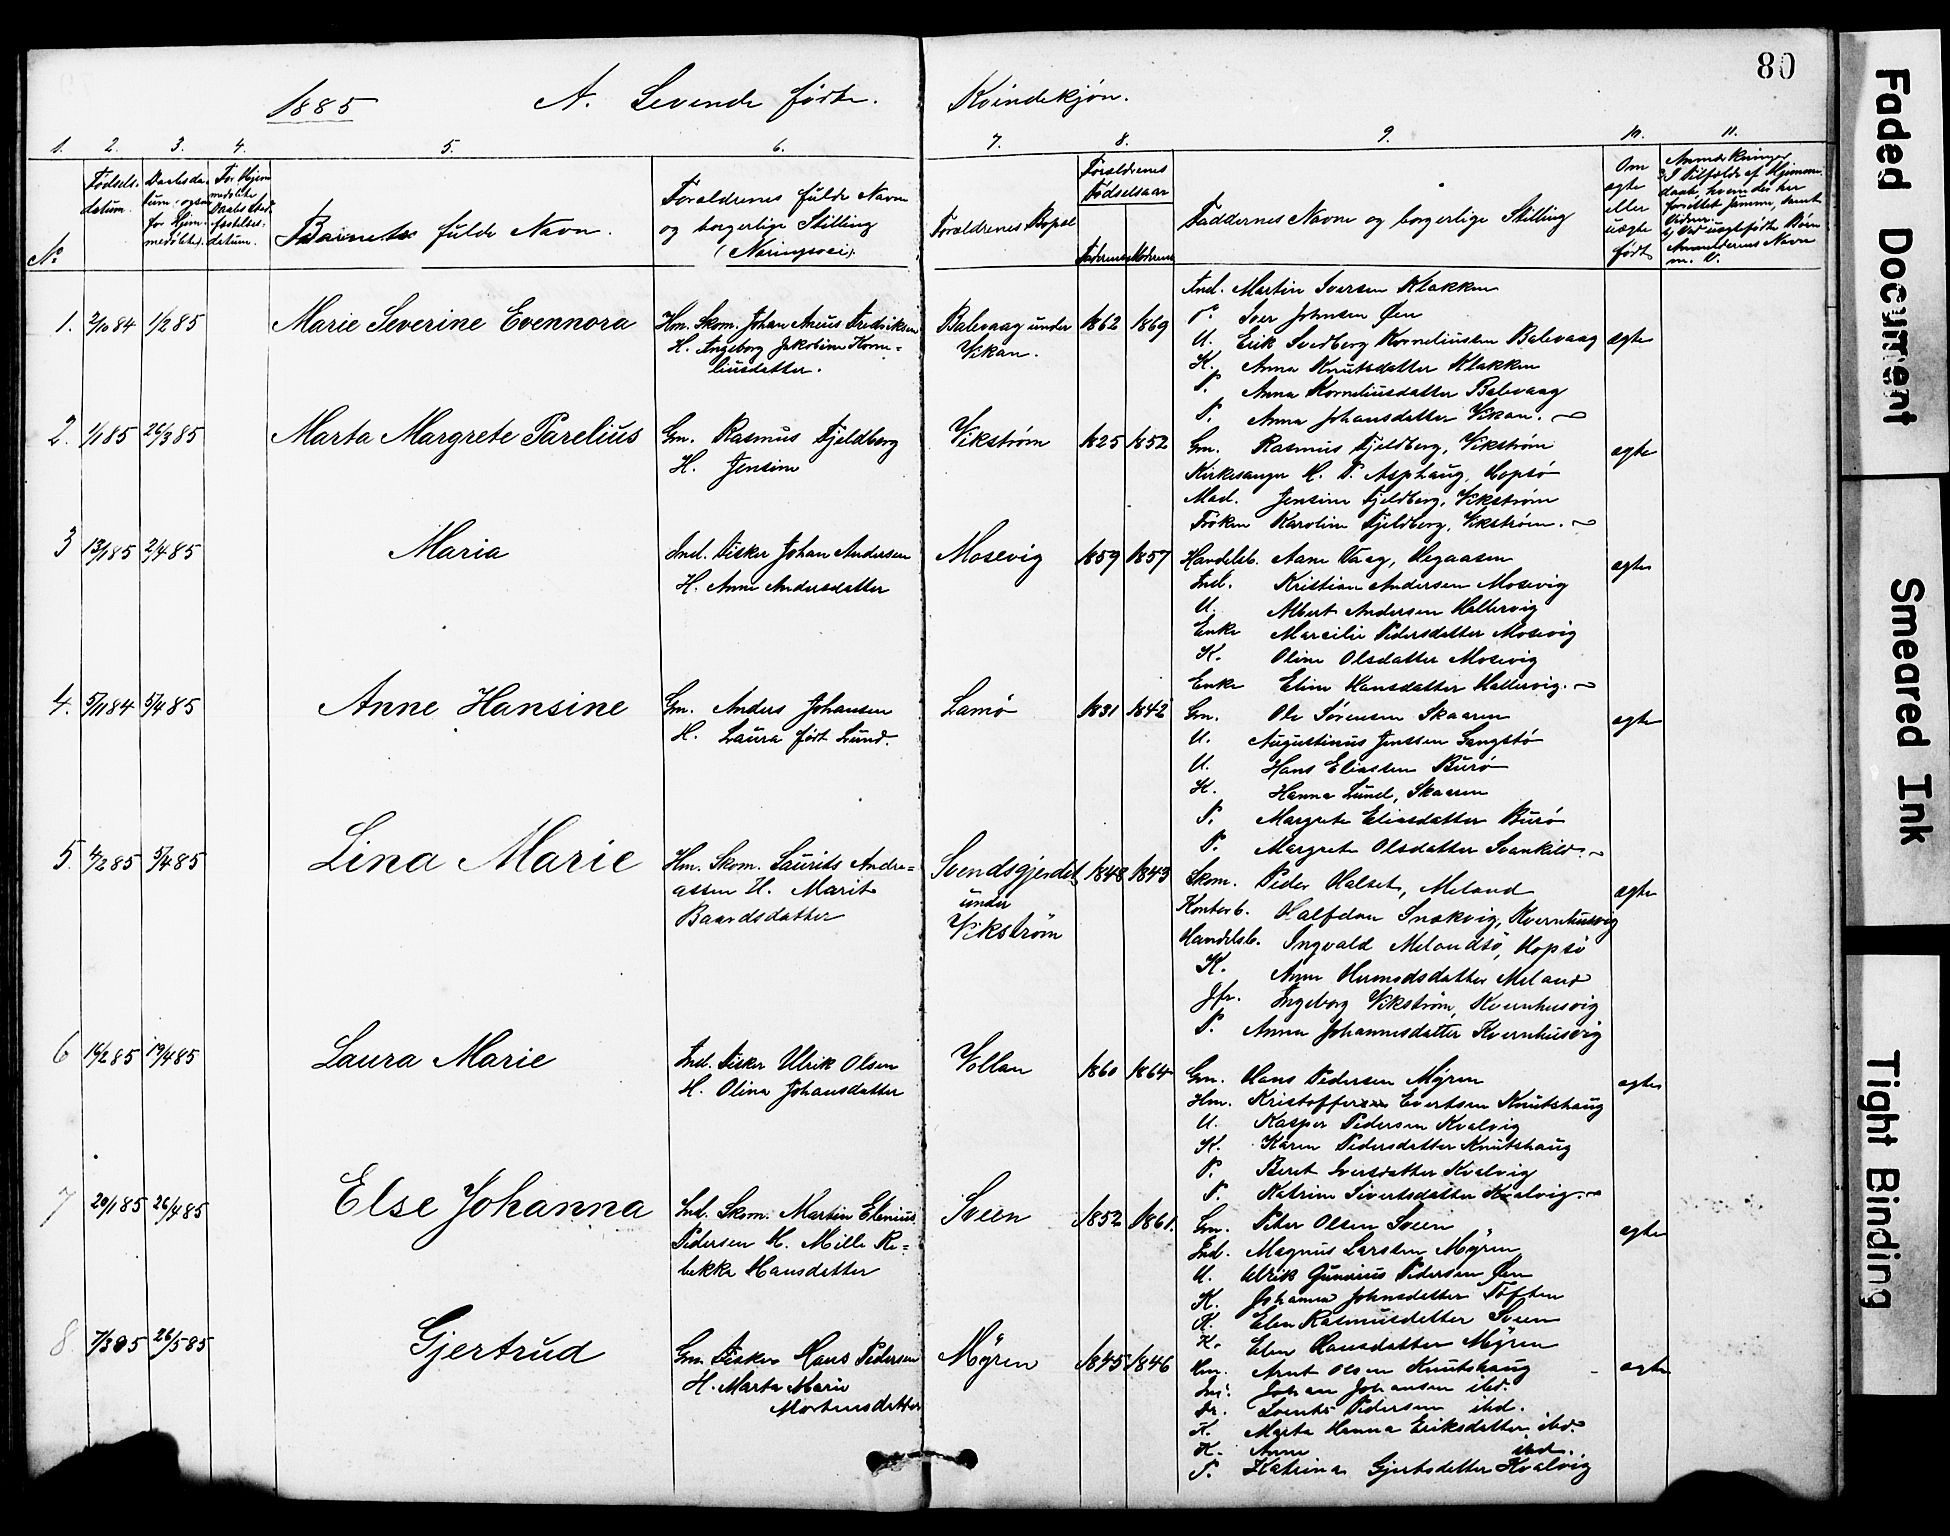 80
1885 A. Levende fødte. Kvindekjøn.
1. 2. 3. 4. 5. 6. 7. 8. 9. 10. 11.
No
Fødsels-
datum.
Daabsda-
tum, ogsaa
for Hjem-
medøbte.
For Hjem
medøbte
Daabs Stad-
fæstelses-
datum.
Barnets fulde Navn.
Forældrenes fulde Navn
og borgerlige Stilling
(Næringsvei).
Forældrenes Bopæl
Forældrenes
Fødselsaar
Faderens Moderens
Faddernes Navne og borgerlige Stilling
Om
ægte
eller
uægte
født
Anmærkninger
m. V.
1. 2/10 84 1/2 85 Marie Severine Evennora
Hm. Skom. Johan Aneus Fredriksen
H. Ingeborg Jakobine Korne-
liusdatter.
Balevaag under
Vikan.
1862 1869
Ind. Martin Iversen Klakken
Iver Johnsen Øen
U. Erik Svedberg Korneliussen Balevaag
K. Anna Knutsdatter Klakken
P. Anna Korneliusdatter Balevaag
P. Anna Johansdatter Vikan.
ægte
2. 1/1 85 26/3 85 Marta Margrete Parelius
Gm. Rasmus Fjeldberg
H. Jensine
Vikstrøm
1825 1852
Gm. Rasmus Fjeldberg, Vikstrøm
Kirkesanger H. P. Asphaug, Hopsø
Mad. Jensine Fjeldberg, Vikstrøm
Frøken Karoline Fjeldberg, Vikstrøm.
ægte
3 13/1 85 2/4 85 Maria
Ind. Fisker Johan Andersen
H. Anne Andersdatter
Mosevig
1859 1857
Handelsb. Aane Vaag, Hegaasen
Ind. Kristian Andersen Mosevig
U. Albert Andersen Hallervig
Enke Marcilie Pedersdatter Mosevig
K. Oline Olsdatter Mosevig
Enke Eline Hansdatter Hallervig.
ægte
4. 5/11 84 5/4 85 Anne Hansine
Gm. Anders Johansen
H. Laura født Lund.
Lamø
1831 1842
Gm. Ole Sørensen Skaaren
U. Augustinus Jenssen Langstø
U. Hans Eliassen Burø
K. Hanna Lund, Skaaren
P. Margrete Eliasdatter Burø
P. Margrete Olsdatter Svankild.
ægte
5. 4/2 85 5/4 85 Lina Marie
Hm. Skom. Laurits Andre-
assen H. Marit
Baardsdatter
Svendsgjerdet
under
Vikstrøm
1848 1843
Skom. Peder Halset, Meland
Kontorb. Halfdan Snekvig, Kvernhusvig
Handelsb. Ingvald Melandsø, Hopsø
K. Anne Hermodsdatter Meland
Jfr. Ingeborg Vikstrøm, Kvernhusvig
P. Anna Johannesdatter Kvernhusvig
ægte
6 14/2 85 19/4 85 Laura Marie
Ind. Fisker Ulrik Olsen
H. Olina Johansdatter
Vollan
1860 1864
Gm. Hans Pedersen Myren
Hm. Kristoffer Evertsen Knutshaug
U. Kasper Pedersen Kvalvig
K. Karen Pedersdatter Knutshaug
P. Beret Iversdatter Kvalvig
P. Katrine Sivertsdatter Kvalvig.
ægte
7 20/1 85 26/4 85 Else Johanna
Ind. Skom. Martin Elenius
Pedersen H. Mille Re-
bekka Hansdatter
Sveen
1852 1861
Gm. Peter Olsen Sveen
Ind. Magnus Larssen Myren
U. Ulrik Gunerius Pedersen Øen
K. Johanna Johnsdatter Toften
K. Elen Rasmusdatter Sveen
K. Elen Hansdatter Myren
ægte
8. 7/3 85 26/5 85 Gjertrud
Gm. Fisker Hans Pedersen
H. Marta Marie
Mortensdatter
Myren
1845 1846
Hm. Arnt Olsen Knutshaug
Ind. Johan Johansen ibd.
Dr. Lorents Pedersen ibd.
K. Marta Hanna Eriksdatter ibd.
K. Anne ibd.
P. Katrina Gjertsdatter Kvalvig
ægte
Faded Document
Smeared Ink
Tight Binding